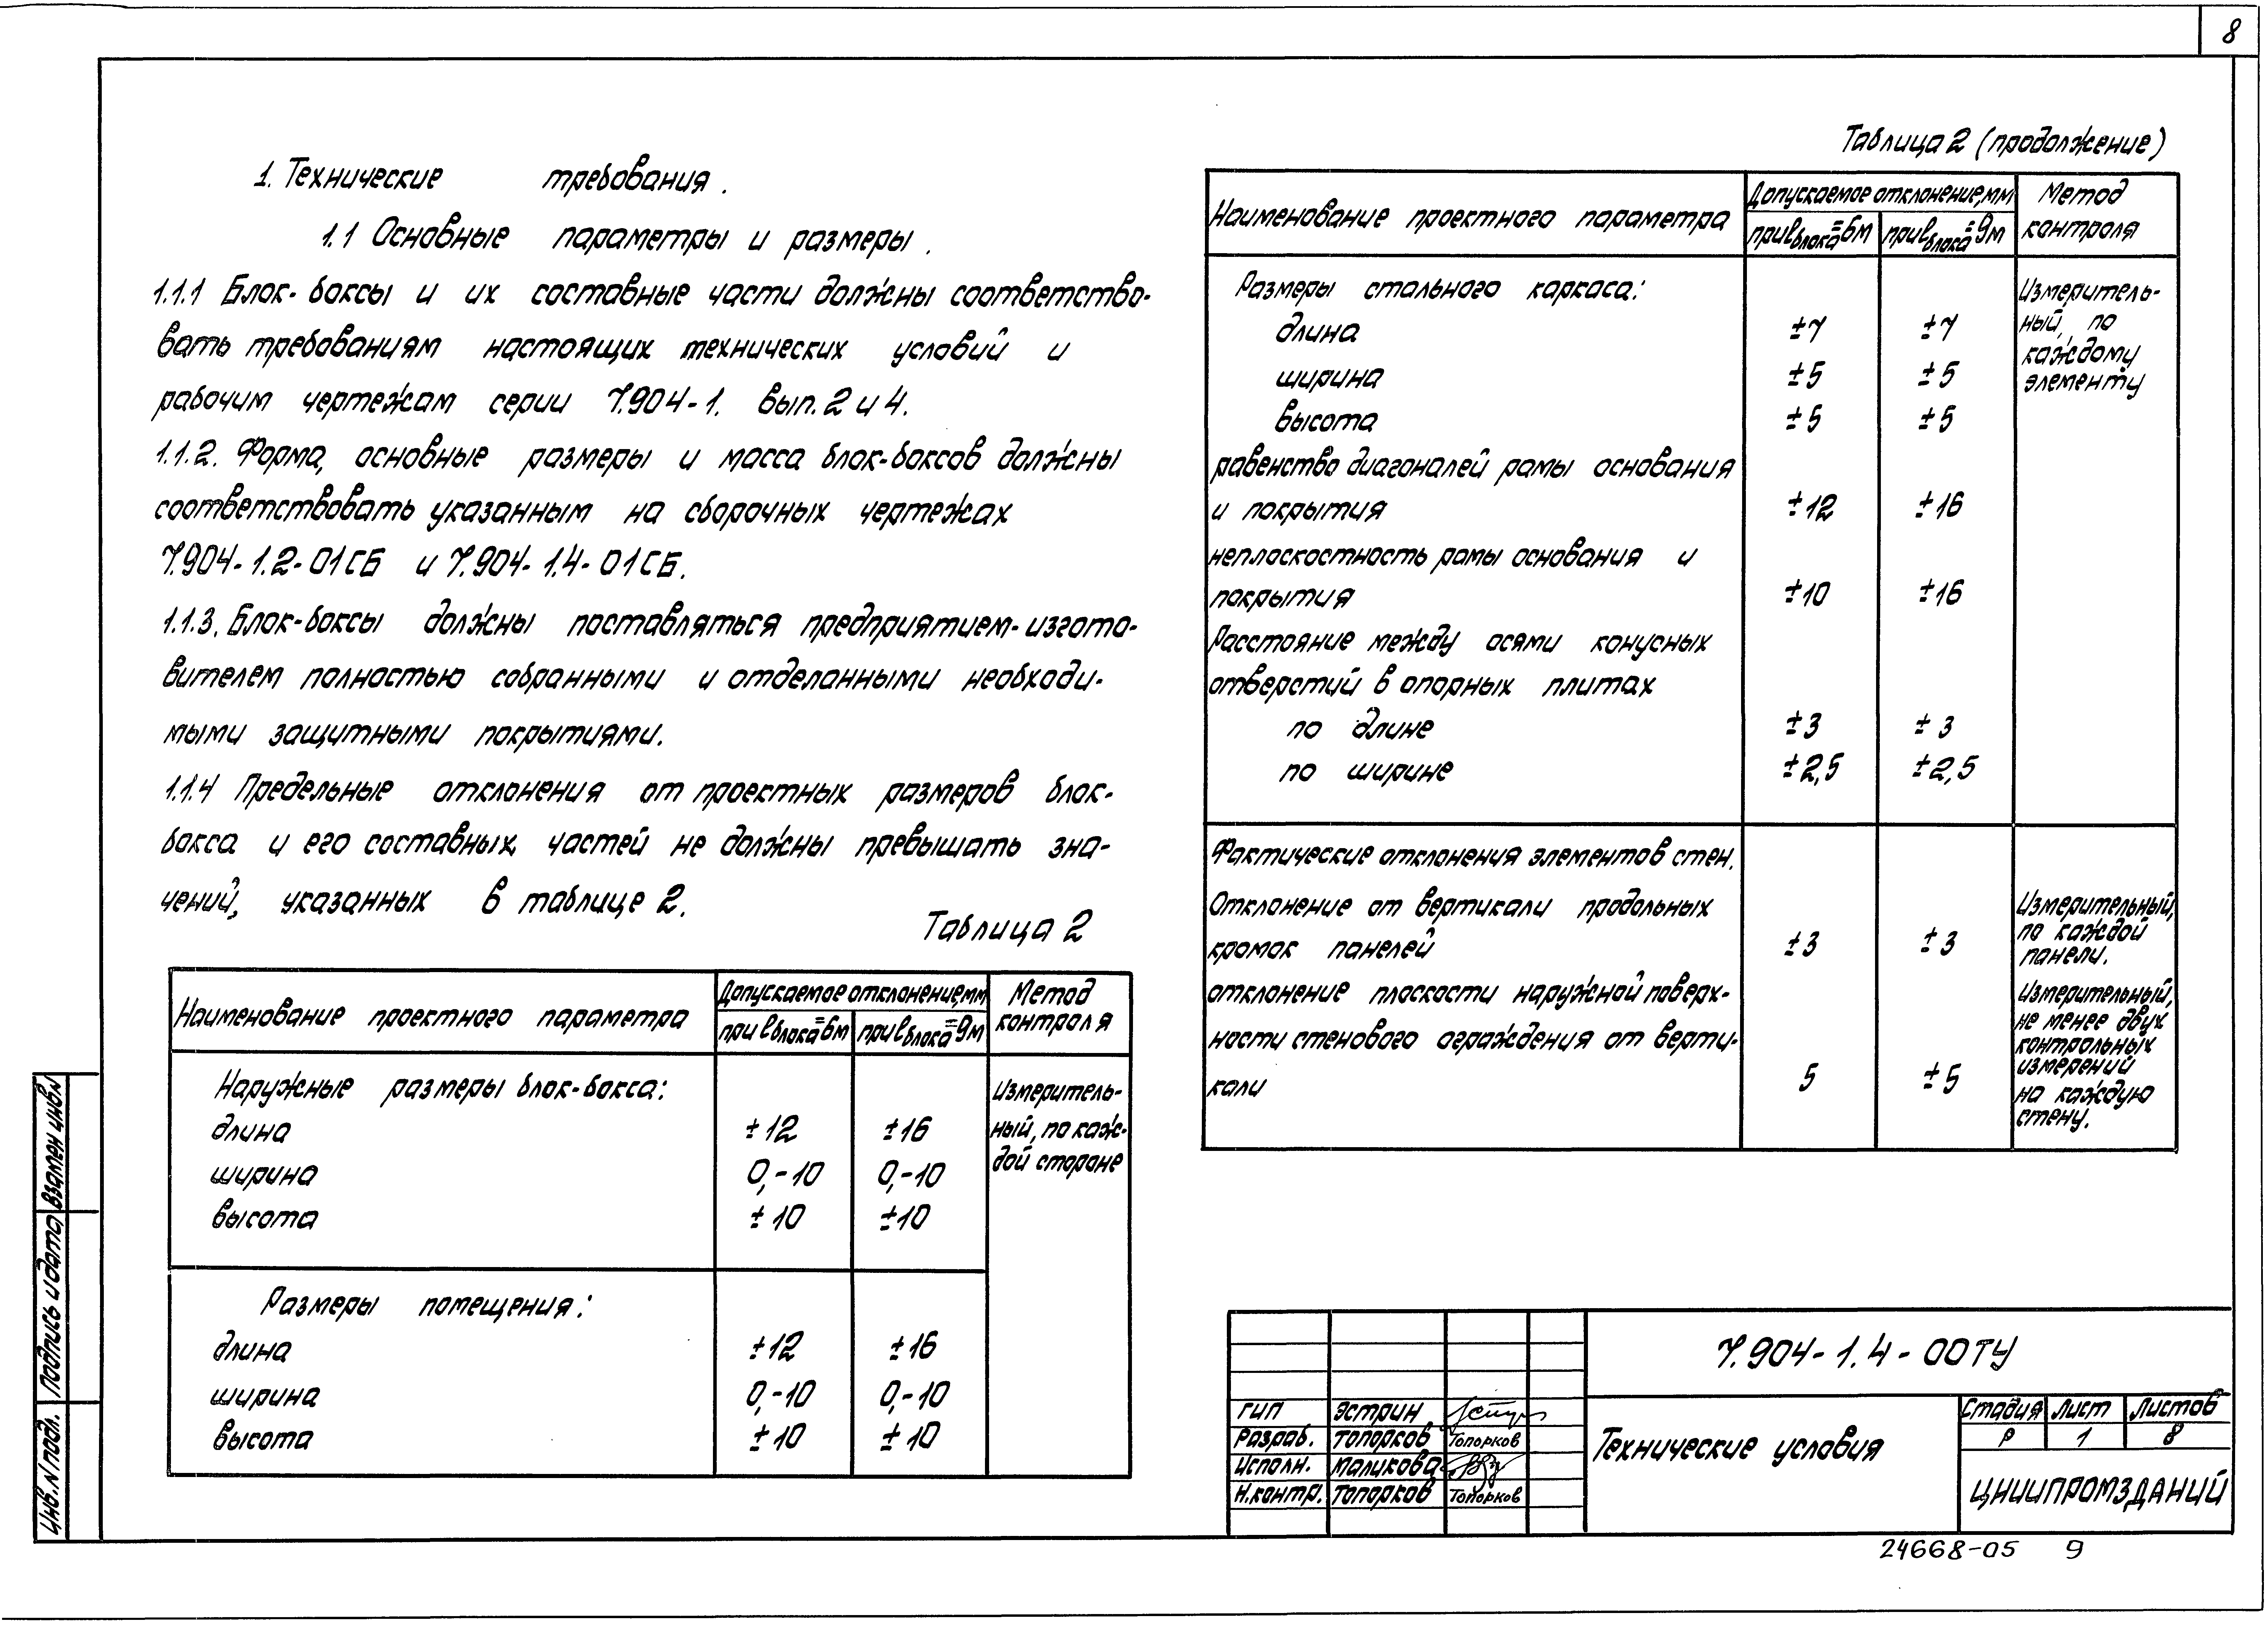 8
1. Технические требования.
1.1 Основные параметры и размеры.
1.1.1 Блок-боксы и их составные части должны соответство-
вать требованиям настоящих технических условий и
рабочим чертежам серии 7.904-1. вып. 2 и 4.
1.1.2. Форма, основные размеры и масса блок-боксов должны
соответствовать указанным на сборочных чертежах
7.904-1.2-01СБ и 7.904-1.4-01СБ.
1.1.3. Блок-боксы должны поставляться предприятием-изгото-
вителем полностью собранными и отделанными необходи-
мыми защитными покрытиями.
1.1.4 Предельные отклонения от проектных размеров блок-
бокса и его составных частей не должны превышать зна-
чений, указанных в таблице 2.
Таблица 2
Наименование проектного параметра
Допускаемое отклонение,мм
при lблока=6м при lблока=9м
Метод
контроля
Наружные размеры блок-бокса:
длина ±12 ±16
ширина 0,-10 0,-10
высота ±10 ±10
Измеритель-
ный, по каж-
дой стороне
Размеры помещения:
длина ±12 ±16
ширина 0,-10 0,-10
высота ±10 ±10
Таблица 2 (продолжение)
Наименование проектного параметра
Допускаемое отклонение,мм
при lблока=6м при lблока=9м
Метод
контроля
Размеры стального каркаса:
длина ±7 ±7
ширина ±5 ±5
высота ±5 ±5
Измеритель-
ный, по
каждому
элементу
равенство диагоналей рамы основания
и покрытия ±12 ±16
неплоскостность рамы основания и
покрытия ±10 ±16
Расстояние между осями конусных
отверстий в опорных плитах
по длине ±3 ±3
по ширине ±2,5 ±2,5
Фактические отклонения элементов стен.
Отклонение от вертикали продольных
кромок панелей ±3 ±3
Измерительный,
по каждой
панели.
отклонение плоскости наружной поверх-
ности стенового ограждения от верти-
кали 5 ±5
Измерительный,
не менее двух
контрольных
измерений
на каждую
стену.
7.904-1.4-00ТУ
ГИП Эстрин
Разраб. Топорков Топорков
Исполн. Маликова
Н.контр. Топорков Топорков
Технические условия
Стадия Лист Листов
Р 1 8
ЦНИИПРОМЗДАНИЙ
24668-05 9
Взамен инв.N
Подпись и дата
Инв. N подл.